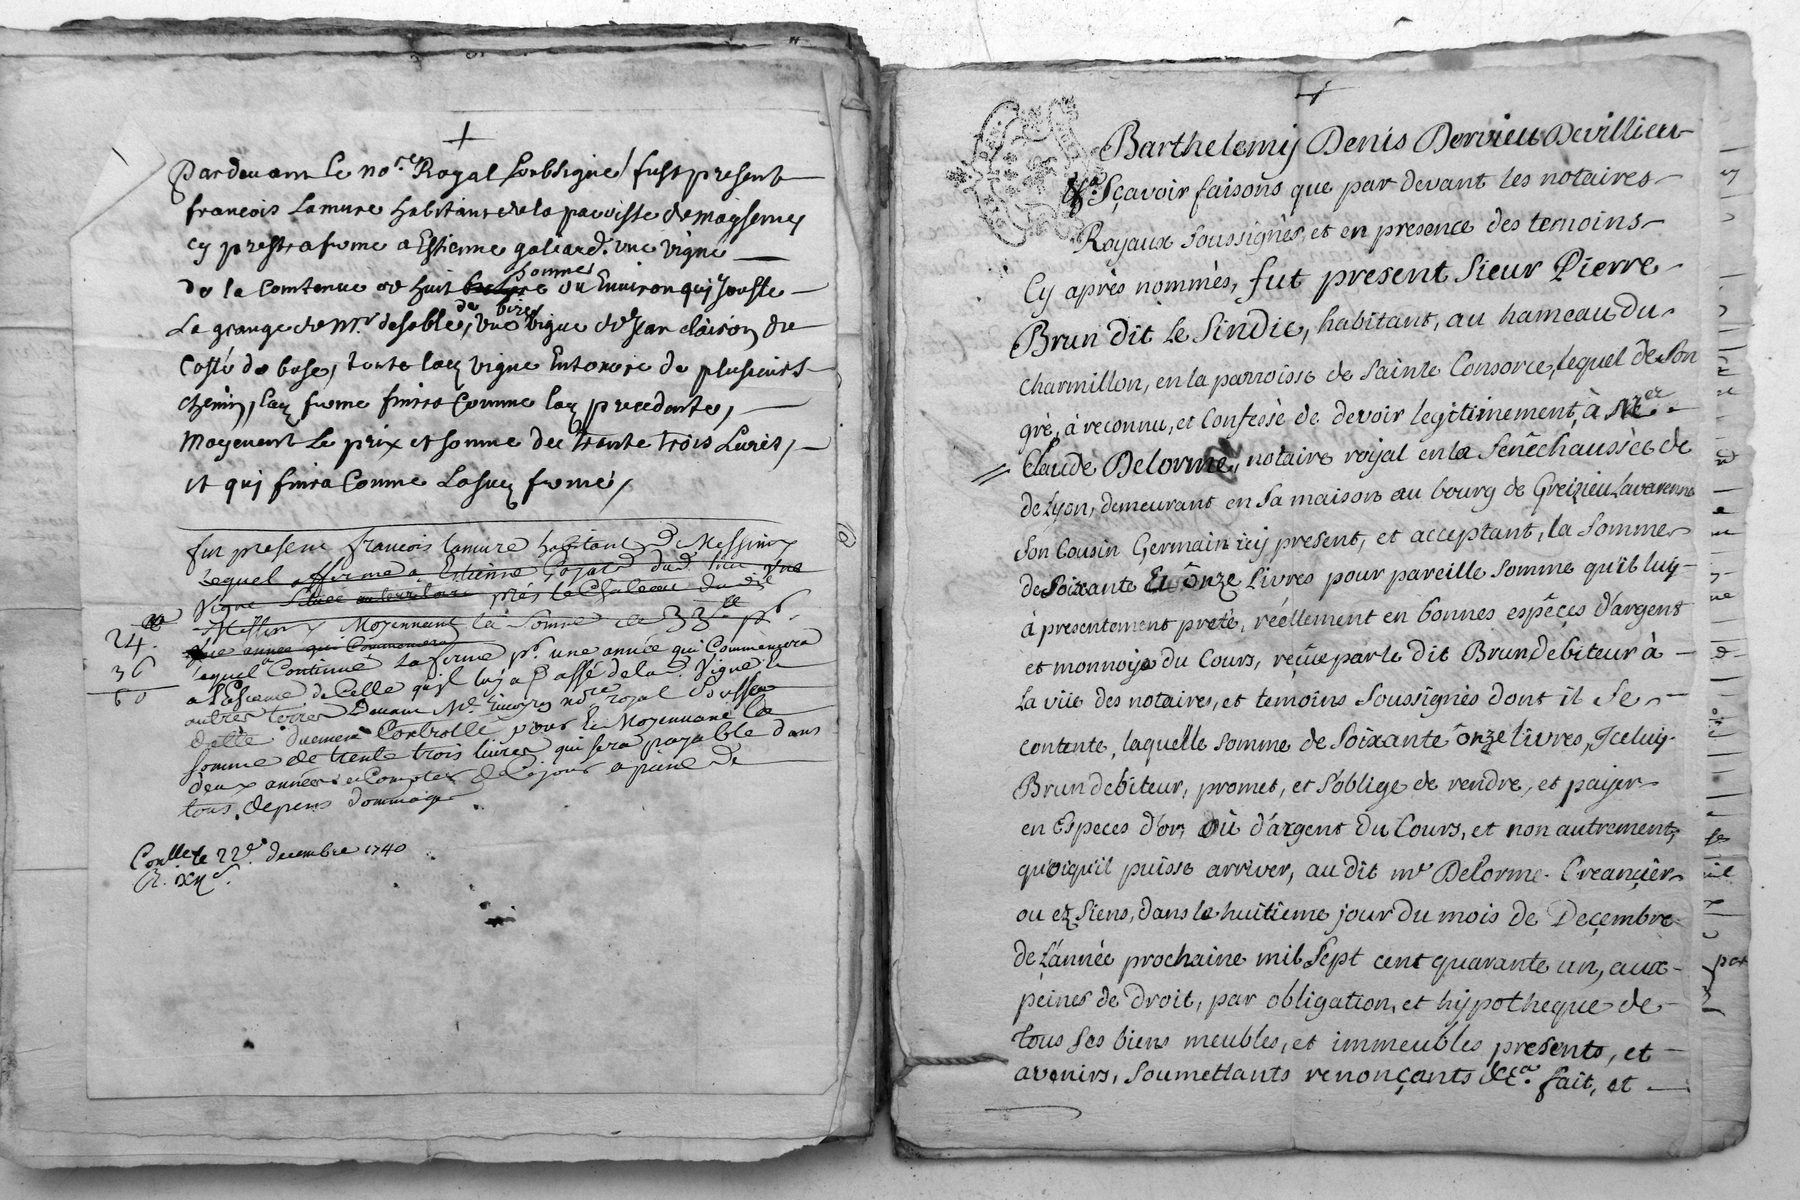 Pardevant Le no.re Royal Soubsigne fust present
francois Lamure habitant de la parroisse de Maysemy
cy prest a ferme a Estienne galiard. une vigne
de la Contenue de huit homme ou Environ qui Jouste
La grange de Mr. de sable, vigne de Jean claison de
Costé de bise, toute lad. vigne Entourée de plusieurs
chemin, lad. ferme finira Comme lad. precedante,
Moyenent Le prix et somme de trante trois Livres,
et qui finira Comme Lasud. fermé,
fut present francois Lamure habitant de Messimy
Lequel afferme a Estienne Gayard
Vigne Située au territoire près le Chateau dud.
Messimy Moyennant la Somme de 33ll
une année qui Commencera
24.
lequel a Continué La ferme pr. une année qui Commencera
36
60
a L'Echeance de Celle qu'il luy a passé de la d. Vigne &
autres terres Devant Me. no.re royal
dette duement Controllé pour & Moyennant la
somme de trente trois livres qui sera payable dans
deux années a Compter de Ce jour a peine de
tous depens dommages
Conlle le 22e. decembre 1740
R. xii s.
Barthelemy Denis Dervieu Devillieu
&a. Sçavoir faisons que par devant les notaires
Royaux soussignés, et en presence des temoins
Cy après nommés, fut present Sieur Pierre
Brun dit Le Sindic, habitant, au hameau du
charmillon, en la parroisse de Sainte Consorce, Lequel de Son
gré, à reconnu, et Confessé de devoir legitimement, à Me
Claude Delorme, notaire royal en la Senêchaussée de
de Lyon, demeurant en Sa maison au bourg de Greizieu Lavarenne
Son Cousin Germain icy present, et acceptant, la Somme
de Soixante Et Onze Livres pour pareille Somme qu'il luy
à presentement preté, réellement en bonnes espêces d'argent
et monnoye du Cours, reçüe par le dit Brun debiteur à
La vüe des notaires, et temoins Soussignés dont il Se
contente, laquelle Somme de Soixante Onze livres, Iceluy
Brun debiteur, promet, et S'oblige de rendre, et payer
en Especes d'or, où d'argent du Cours, et non autrement,
quoiqu'il puisse arriver, au dit me Delorme Creançier
ou ez Siens, dans le huitieme jour du mois de Deçembre
de L'année prochaine mil Sept cent quarante un, aux
peines de droit, par obligation, et hypotheque de
tous Ses biens meubles, et immeubles presents, et
avenirs, Soumettants renonçants &c.a fait, et